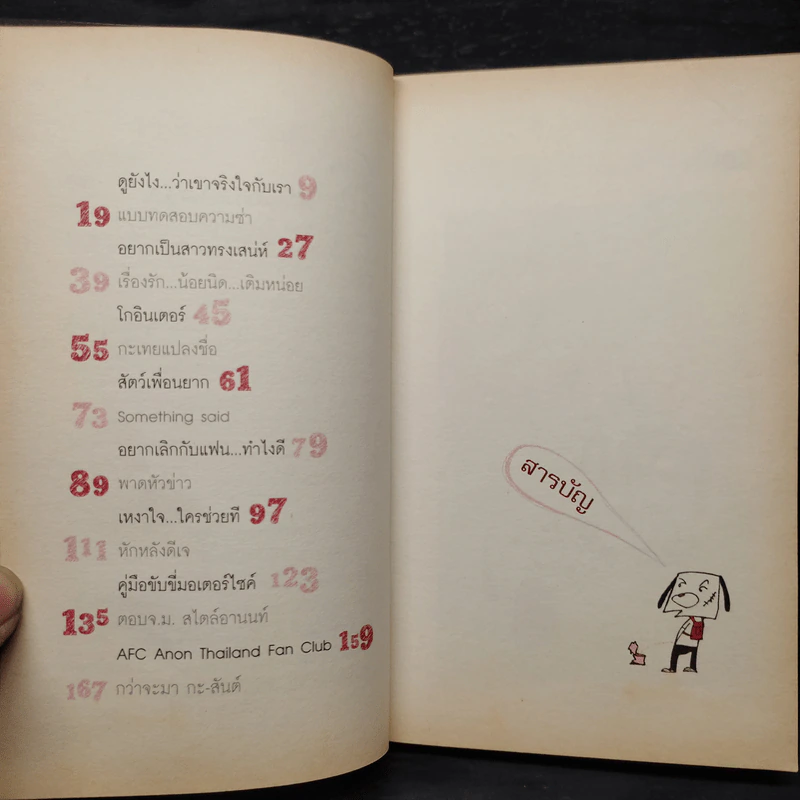 ดูยังไง...ว่าเขาจริงใจกับเรา 9
19 แบบทดสอบความซ่า
อยากเป็นสาวทรงเสน่ห์ 27
39 เรื่องรัก...น้อยนิด...เติมหน่อย
โกอินเตอร์ 45
55 กะเทยแปลงชื่อ
สัตว์เพื่อนยาก 61
73 Something said
อยากเลิกกับแฟน...ทำไงดี 79
89 พาดหัวข่าว
เหงาใจ...ใครช่วยที 97
111 หักหลังดีเจ
คู่มือขับขี่มอเตอร์ไซค์ 123
135 ตอบจ.ม. สไตล์อานนท์
AFC Anon Thailand Fan Club 159
167 กว่าจะมา กะ-สันต์
สารบัญ